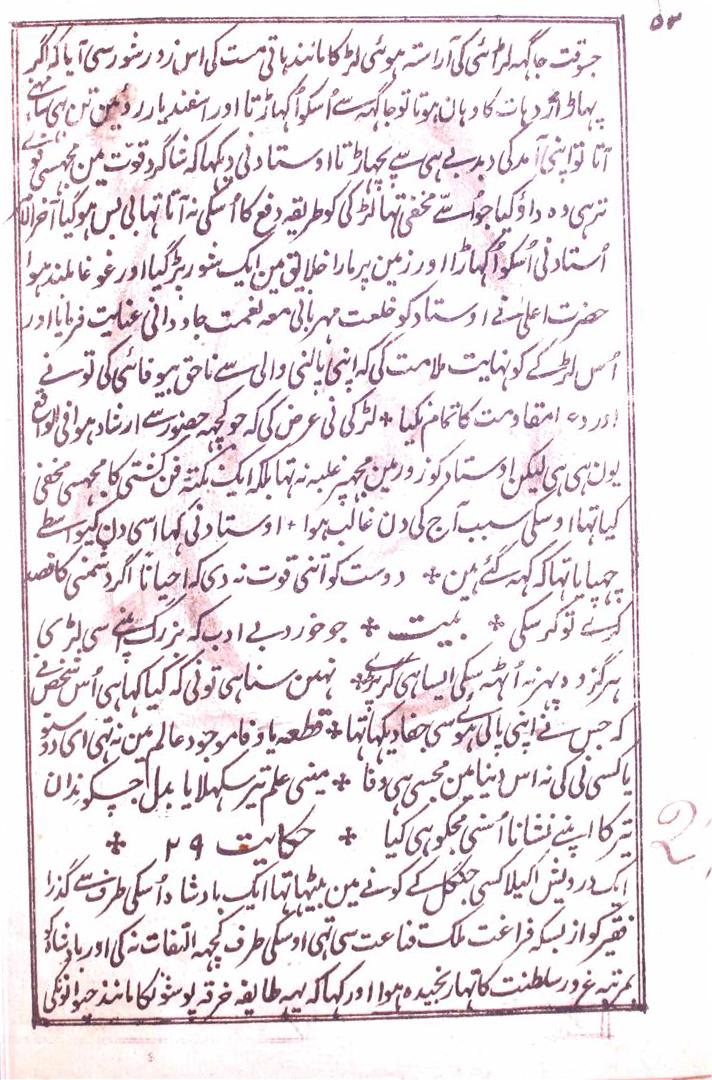 ۵۳
جسوقت جاگہہ لڑائی کی آراستہ ہوئی لڑکا مانند ہاتی مست کی اس زور شور سی آیا کہ اگر
پہاڑ اژدہات کا وہان ہوتا تو جاگہہ سے اُسکو اُکہاڑتا اور اسفندیار روئین تن بہی سامہنے
آتا تو اپنی آمد کی دبدبے ہی سے پچہاڑتا اوستاد نی دیکہا کہ شاگرد قوّت مین مجہسی
تر ہی وہ داؤ کیا جو اُسے مخفی تہا لڑکی کو طریقہ دفع کا اُسکی نہ آتا تہا بی بس ہو گیا آخر الامر
اُستاد نی اُسکو اُکہاڑا اور زمین پر مارا خلایق مین ایک شور پڑ گیا اور غوغا بلند ہوا
حضرت اعلیٰ نے اوستاد کو خلعت مہربانی معہ نعمت جاودانی عنایت فرمایا اور
اُس لڑکے کو نہایت ملامت کی کہ اپنی پالنی والی سے ناحق بیوفائی کی تونے
اور دعوے مقاومت کا تمام نکیا + لڑکی نی عرض کی کہ جو کچہہ حضور سے ارشاد ہوا فی الواقع
یون ہی ہی لیکن اوستاد کو زور مین مجہپر غلبہ نہ تہا بلکہ ایک نکتہ فن کشتی کا مجہسی مخفی
کیا تہا اوسکی سبب آج کی دن غالب ہوا + اوستاد نی کہا اسی دن کیواسطے
چہپایا تہا کہ کہہ گئے ہین + دوست کو اتنی قوت نہ دی کہ احیاناً اگر دشمنی کا قصد
کرے تو کر سکی + بیت + جو خورد بے ادب کہ بزرگ اپنے سی لڑی
ہرگز وہ پہر نہ اُٹہہ سکی ایسا ہی گر پڑے + نہین سنا ہی تو نی کہ کیا کہا ہی اُس شخص نے
کہ جس نے اپنی پالی ہوئے سی جفا دیکہا تہا + قطعہ یا وفا موجود عالم مین نہ تہی ای دوستو
یا کسی نی کی نہ اس دنیا مین مجسی ہی وفا + مینی علم تیر سکہلایا بدل جسکو ندان
تیر کا اپنے نشانا اُسنی مجکو ہی کیا + حکایت ۲۹ +
ایک درویش اکیلا کسی جنگل کے کونے مین بیٹہا تہا ایک بادشاہ اُسکی طرف سے گذرا
فقیر کو از بسکہ فراغت ملک قناعت سی تہی اوسکی طرف کچہہ التفات نہ کی اور بادشاہ کو
مرتبہ غرور سلطنت کا تہا رنجیدہ ہوا اور کہا کہ یہہ طایفہ خرقہ پوشونکا مانند حیوانونکی